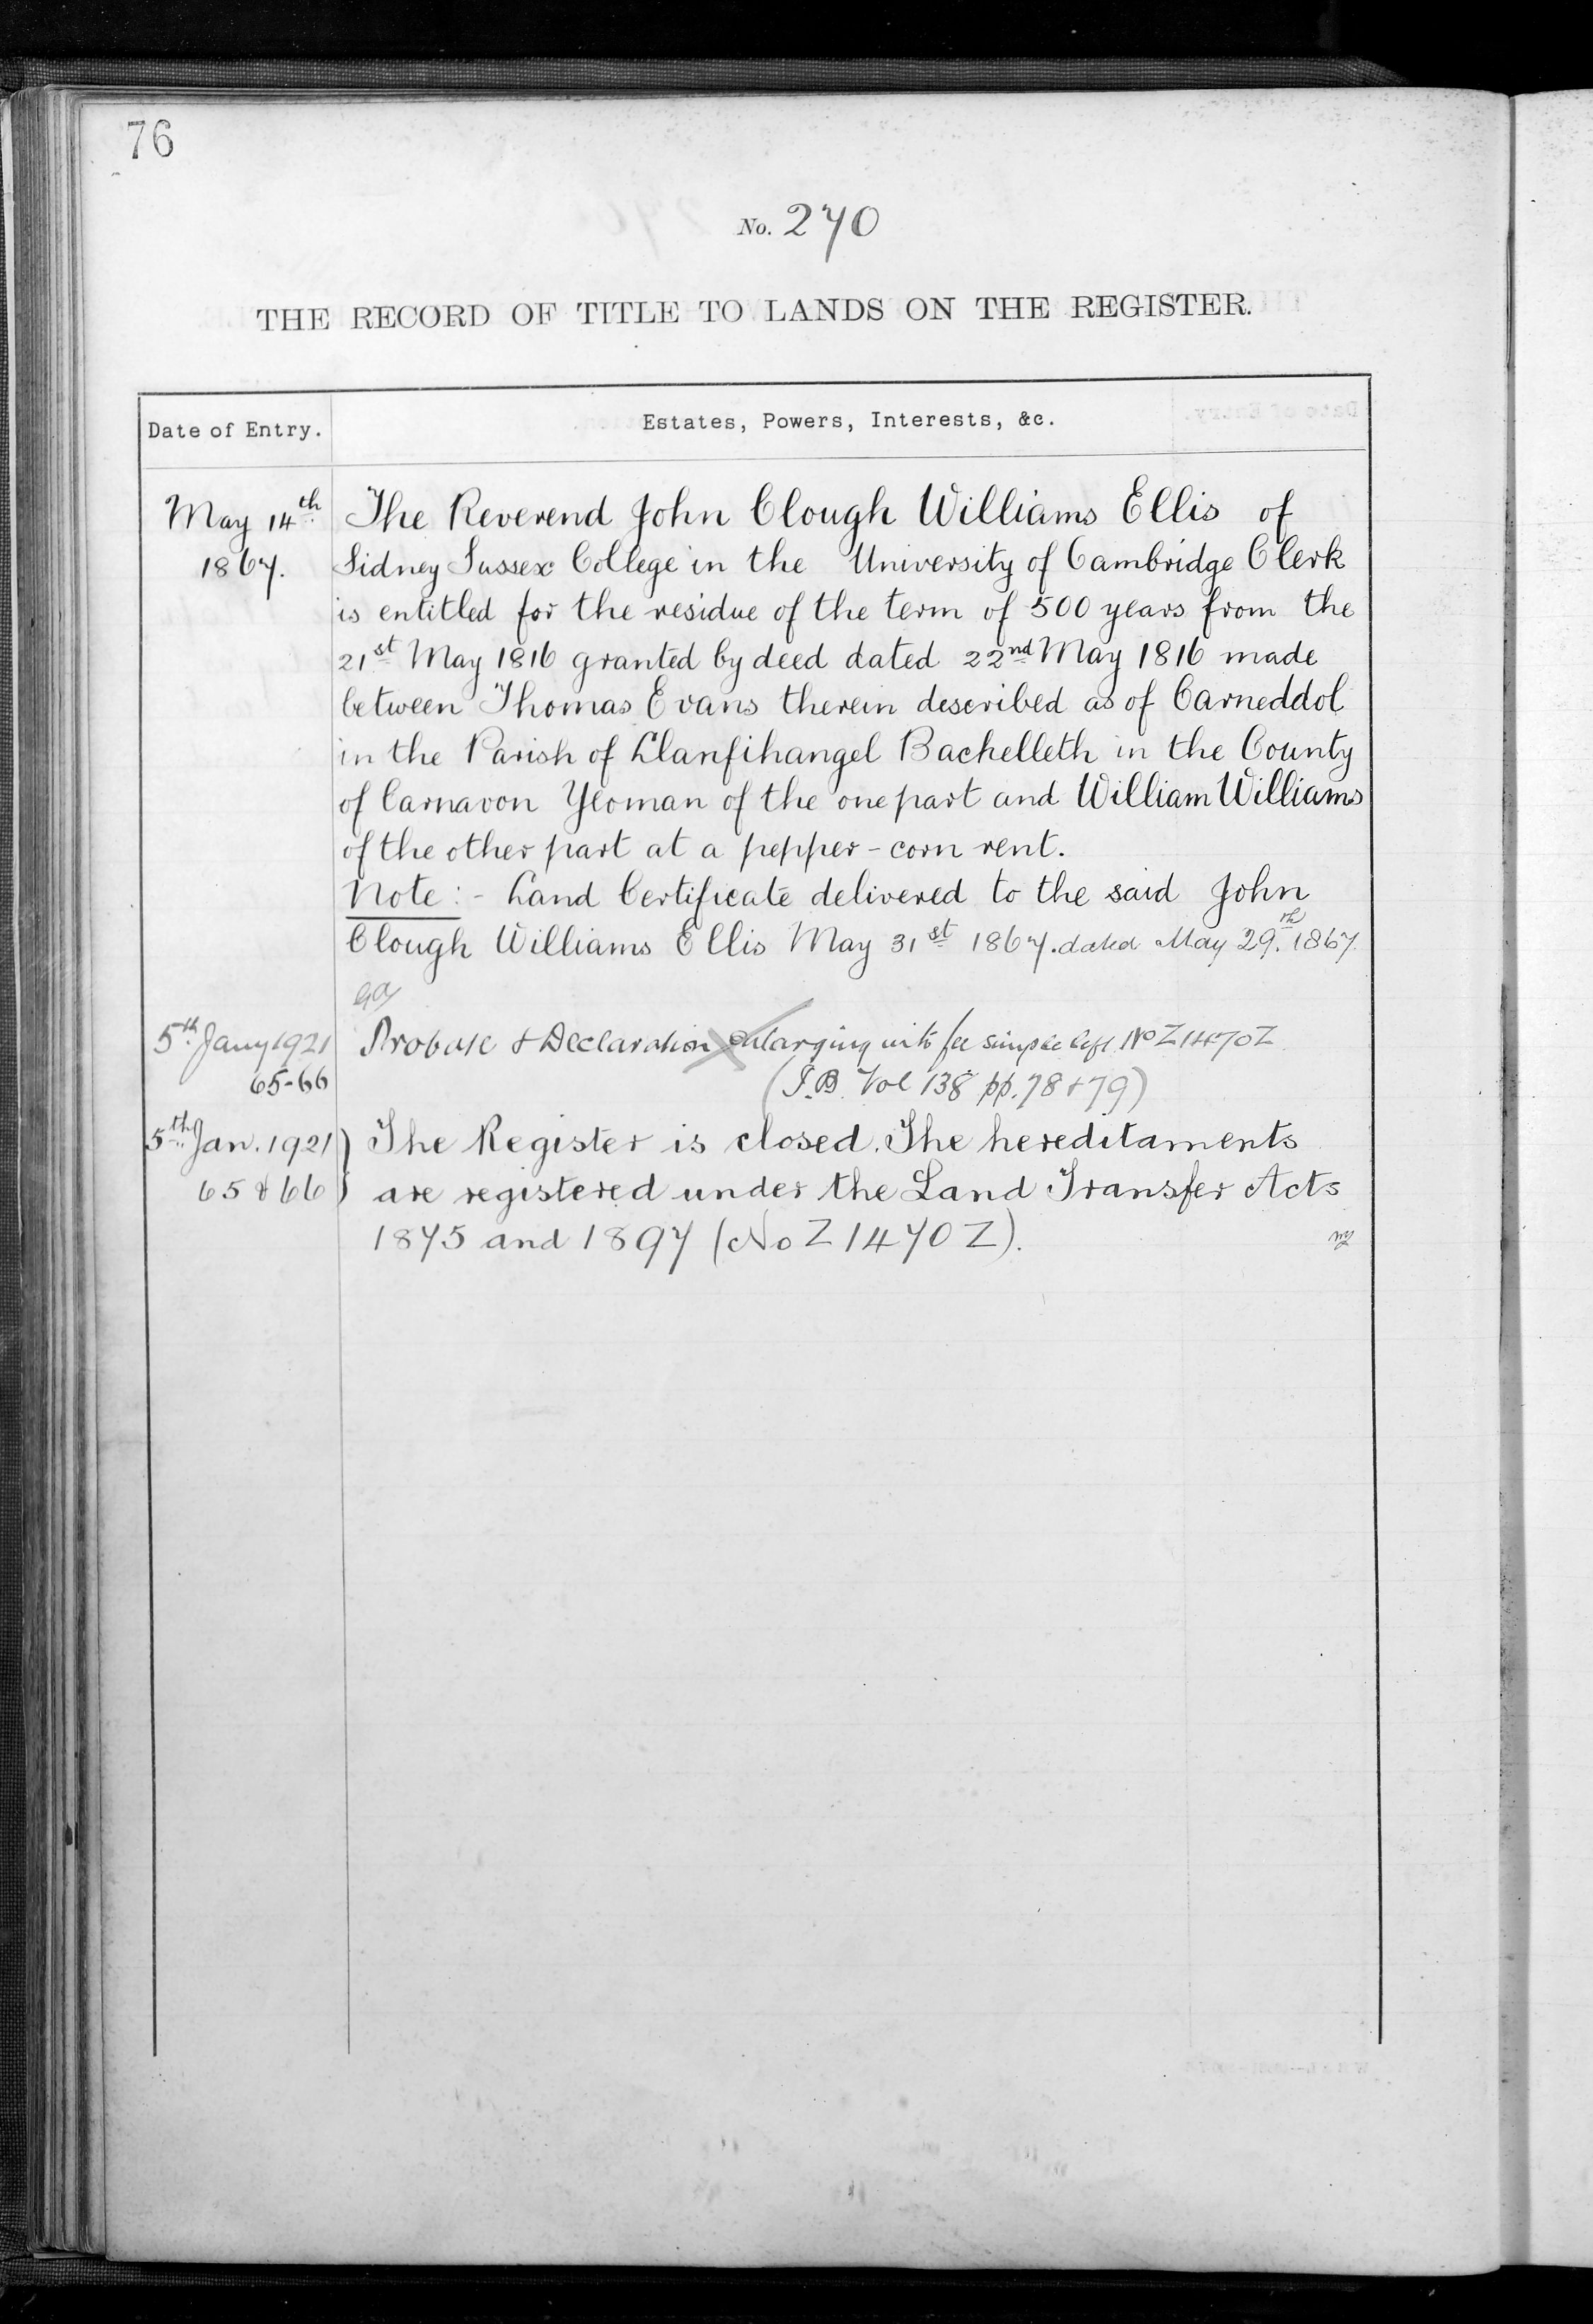 76
No. 270
THE RECORD OF TITLE TO LANDS ON THE REGISTER.
Date of Entry.
Estates, Powers, Interests, &c.
May 14th 1867.
The Reverend John Clough Williams Ellis of
Sidney Sussex College in the University of Cambridge Clerk
is entitled for the residue of the term of 500 years from the
21st May 1816 granted by deed dated 22nd May 1816 made
between Thomas Evans therein described as of Carneddol
in the Parish of Llanfihangel Bachelleth in the County
of Carnavon Yeoman of the one part and William Williams
of the other part at a pepper-corn rent.
Note:- Land Certificate delivered to the said John
Clough Williams Ellis May 31st 1867. dated May 29th 1867.
5th Jany 1921
65-66
Probate & Declaration enlarging into fee simple left No Z1470Z
(I.B. Vol 138 pp. 78 & 79)
5th Jan. 1921)
65 & 66)
The Register is closed. The hereditaments
are registered under the Land Transfer Acts
1875 and 1897 (No Z1470Z).